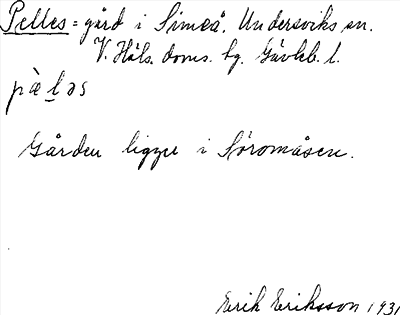 Pelles = gård i Simeå. Undersviks sn.
V. Häls. doms. hg. Gävleb. l.
pæ̀ləs
Gården ligger i Söromåsen.
Erik Eriksson 1931